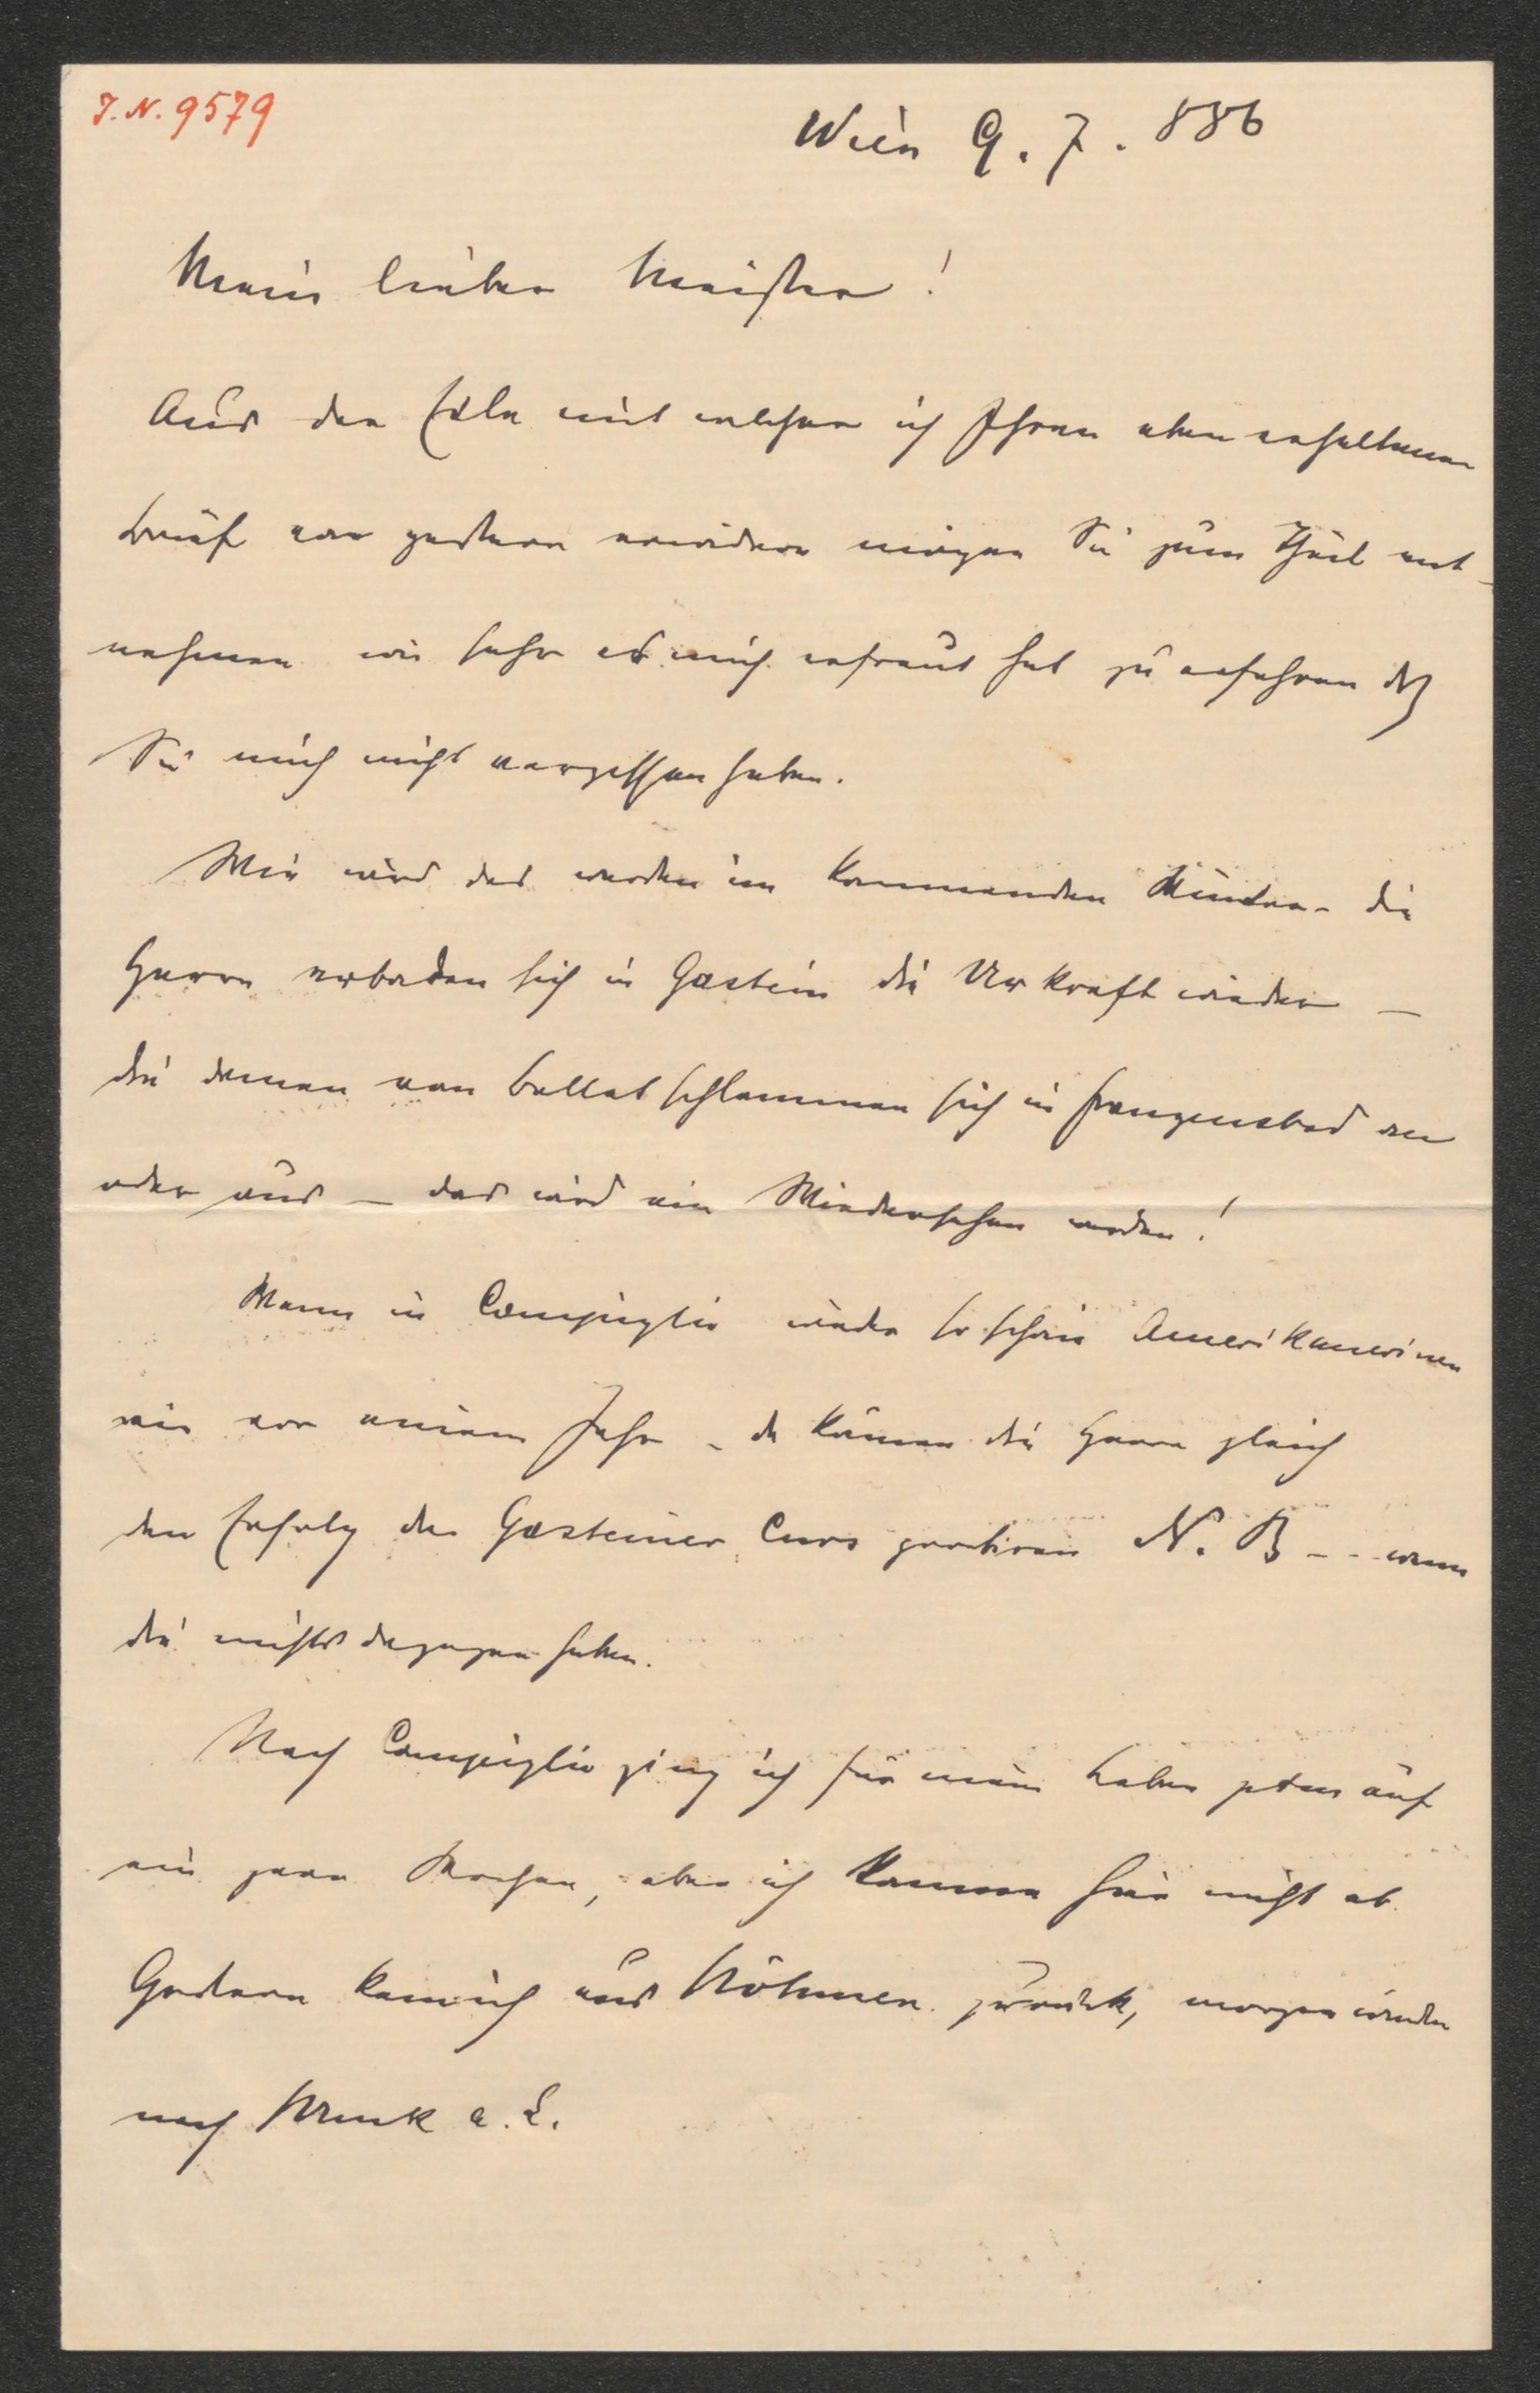 J. N. 9579
Wien 9. 7. 886
Mein lieber Meister!
Aus der Eile mit welcher ich Ihren eben erhaltenen
Brief von gestern erwidere mögen Sie zum Theil ent-
nehmen wie sehr es mich erfreut hat zu erfahren dß
Sie mich nicht vergessen haben.
Wie wird das werden im kommenden Winter – die
Herrn erbaden sich in Gastein die Urkraft wieder –
die damen vom Ballet schlammen sich in Franzensbad an
oder aus – das wird ein Wiedersehen werden!
Wenn in Campiglio wieder so schöne Amerikanerinen
wie vor einem Jahr – da können die Herrn gleich
den Erfolg der Gasteiner Curs probiren N. B – – wenn
die nichts dagegen haben.
Nach Campiglio ging ich für mein Leben gern auf
ein paar Wochen, aber ich komme hier nicht ab.
Gestern kam ich aus Böhmen zurück, morgen wieder
nach Bruck a. L.